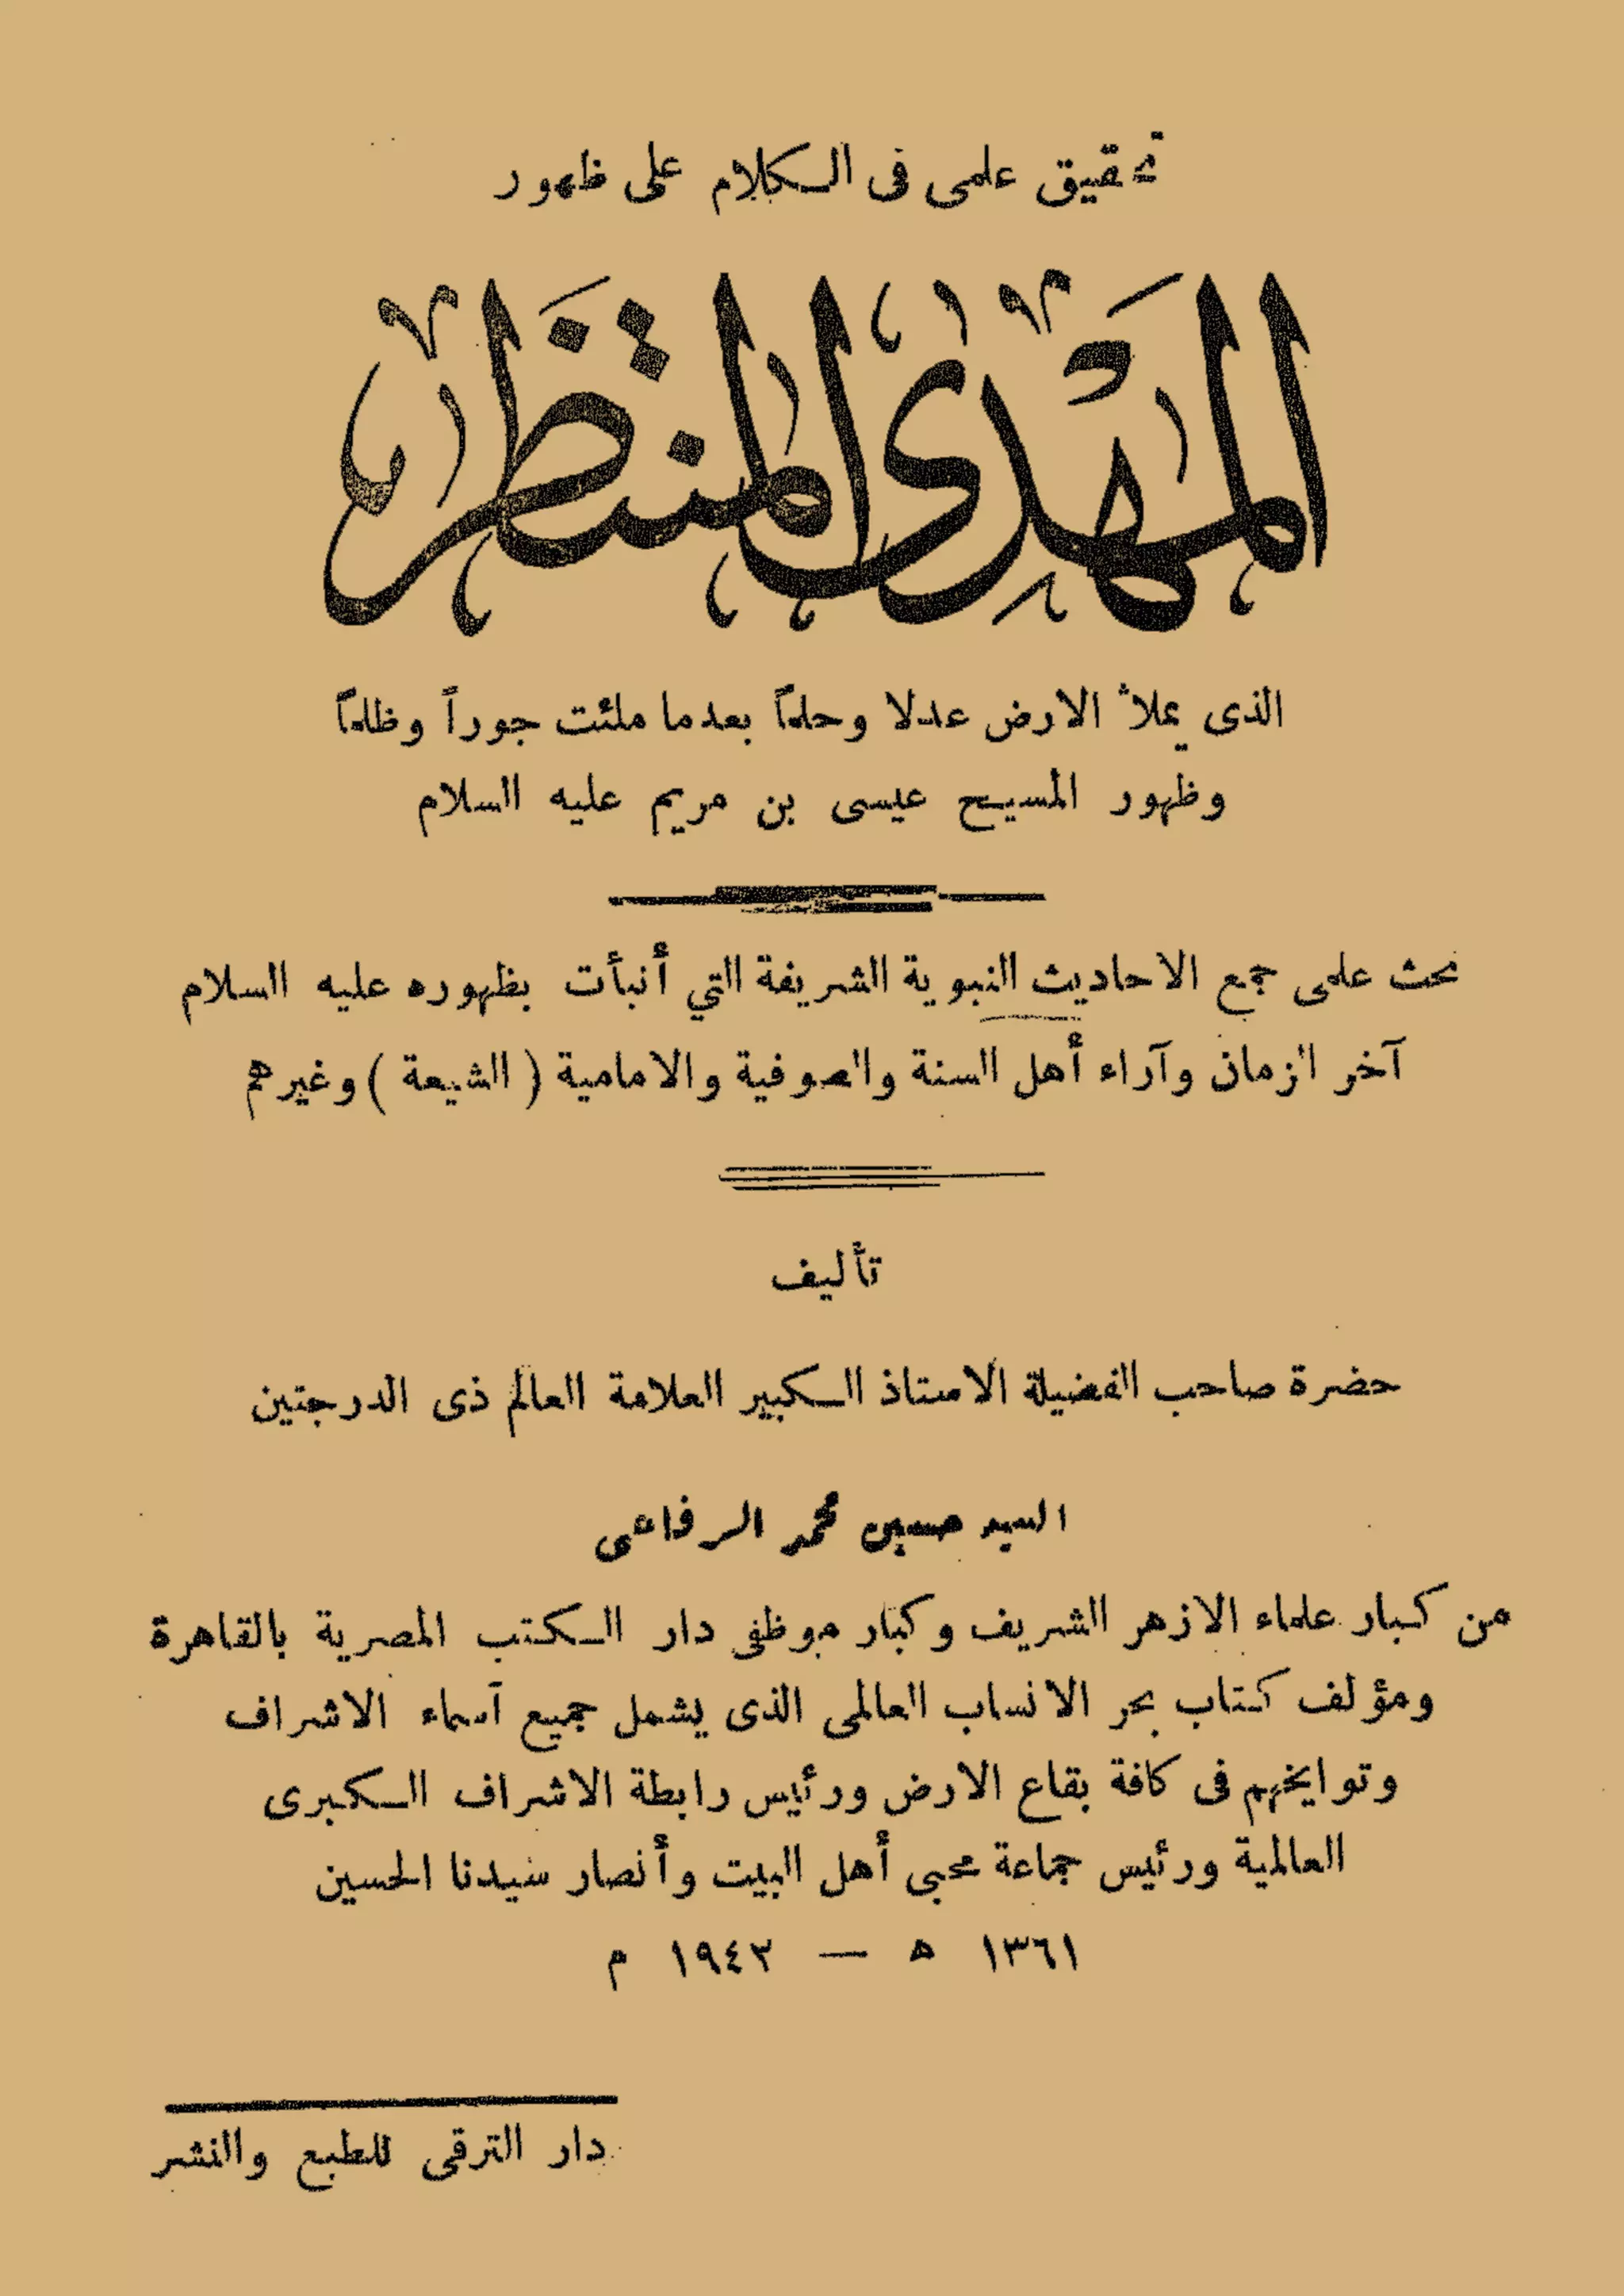 تحقيق علمى فى الكلام على ظهور
المهدى المنتظر
الذى يملأ الارض عدلا وحلماً بعدما ملئت جوراً وظلماً
وظهور المسيح عيسى بن مريم عليه السلام
بحث علمى جمع الاحاديث النبوية الشريفة التي أنبأت بظهوره عليه السلام
آخر الزمان وآراء أهل السنة والصوفية والامامية ( الشيعة ) وغيرهم
تأليف
حضرة صاحب الفضيلة الاستاذ الكبير العلامة العالم ذى الدرجتين
السيد حسين محمد الرفاعى
من كبار علماء الازهر الشريف وكبار موظفى دار الكتب المصرية بالقاهرة
ومؤلف كتاب بحر الانساب العالمى الذى يشمل جميع أسماء الاشراف
وتوايخهم فى كافة بقاع الارض ورئيس رابطة الاشراف الكبرى
العالمية ورئيس جماعة محبى أهل البيت وأنصار سيدنا الحسين
١٣٦١ ه — ١٩٤٢ م
دار الترقى للطبع والنشر